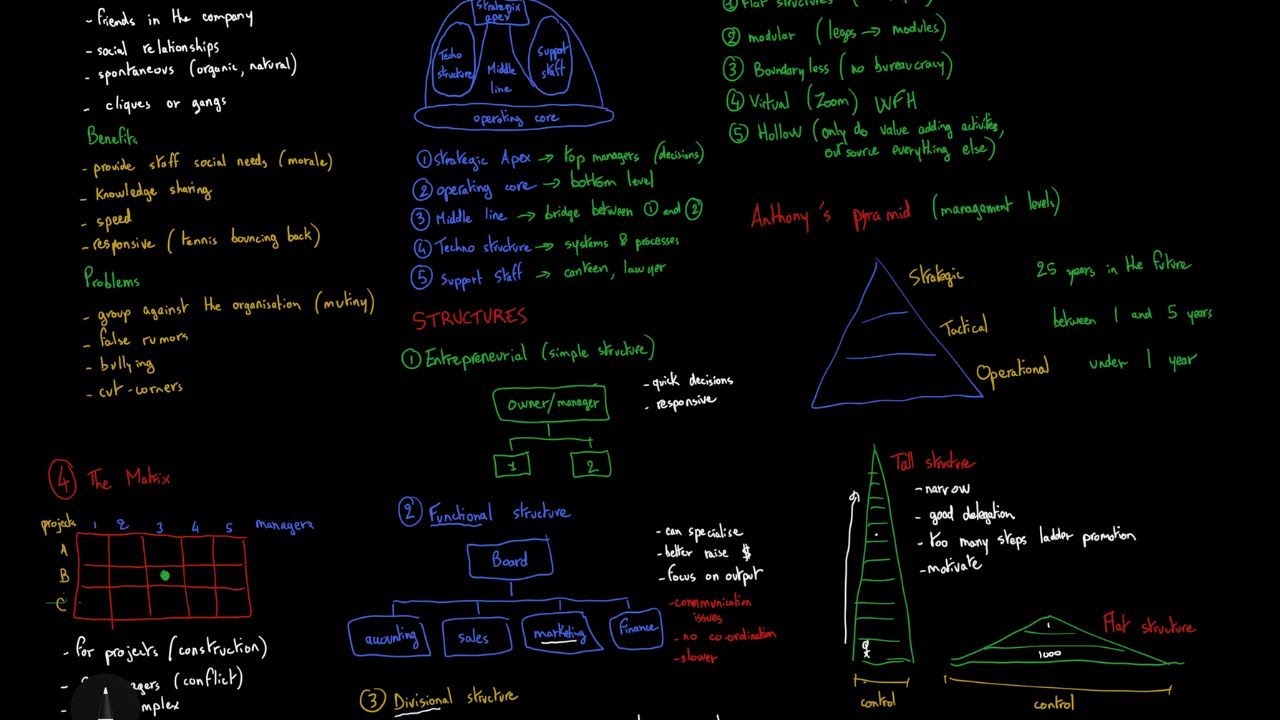 - friends in the company
- social relationships
- spontaneous (organic, natural)
- cliques or gangs
Benefits
- provide staff social needs (morale)
- Knowledge sharing
- speed
- responsive (tennis bouncing back)
Problems
- group against the organisation (mutiny)
- false rumors
- bullying
- cut-corners
④ The Matrix
projects 1 2 3 4 5 managers
A
B
C
- for projects (construction)
(conflict)
Strategic
apex
Techo
structure
Middle
line
Support
staff
operating core
① Strategic Apex → top managers (decisions)
② operating core → bottom level
③ Middle line → bridge between ① and ②
④ Techno structure → systems & processes
⑤ Support staff → canteen, lawyer
STRUCTURES
① Entrepreneurial (simple structure)
owner/manager
1 2
- quick decisions
- responsive
② Functional structure
Board
accounting sales marketing Finance
- can specialise
- better raise $
- focus on output
- communication
issues
- no co-ordination
- slower
③ Divisional structure
① Flat structures
② modular (legos → modules)
③ Boundaryless (no bureaucracy)
④ Virtual (Zoom) WFH
⑤ Hollow (only do value adding activites,
outsource everything else)
Anthony's pyramid (management levels)
Strategic 25 years in the future
Tactical between 1 and 5 years
Operational under 1 year
Tall structure
- narrow
- good delegation
- too many steps ladder promotion
- motivate
control
Flat structure
1
1000
control